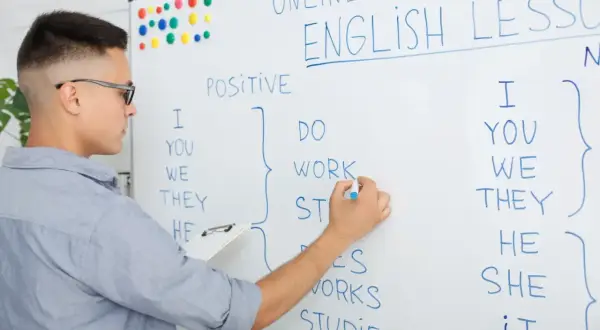 ENGLISH LESSO
POSITIVE
I
YOU
WE
THEY
HE
DO
WORK
ST
ES
WORKS
STUDIE
N
I
YOU
WE
THEY
HE
SHE
iT